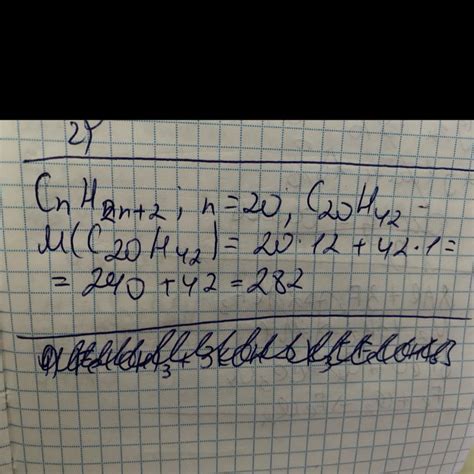 2)
CnH2n+2; n=20, C20H42 -
M(C20H42)= 20·12+42·1=
= 240+42=282